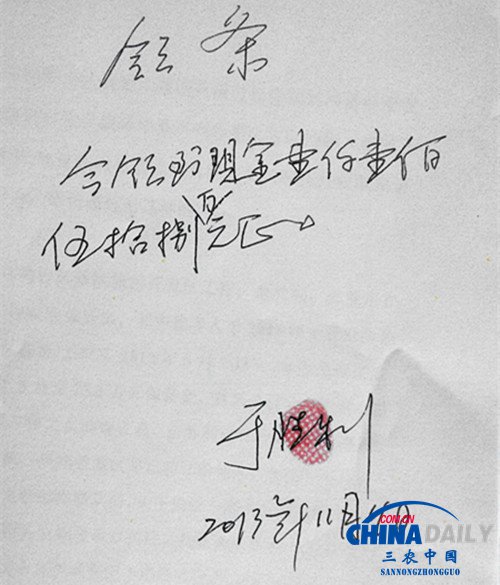 领条
今领到现金壹仟壹佰
伍拾捌元正
于胜利
2013年11月
COM.CN
CHINA DAILY
三农中国
SANNONGZHONGGUO